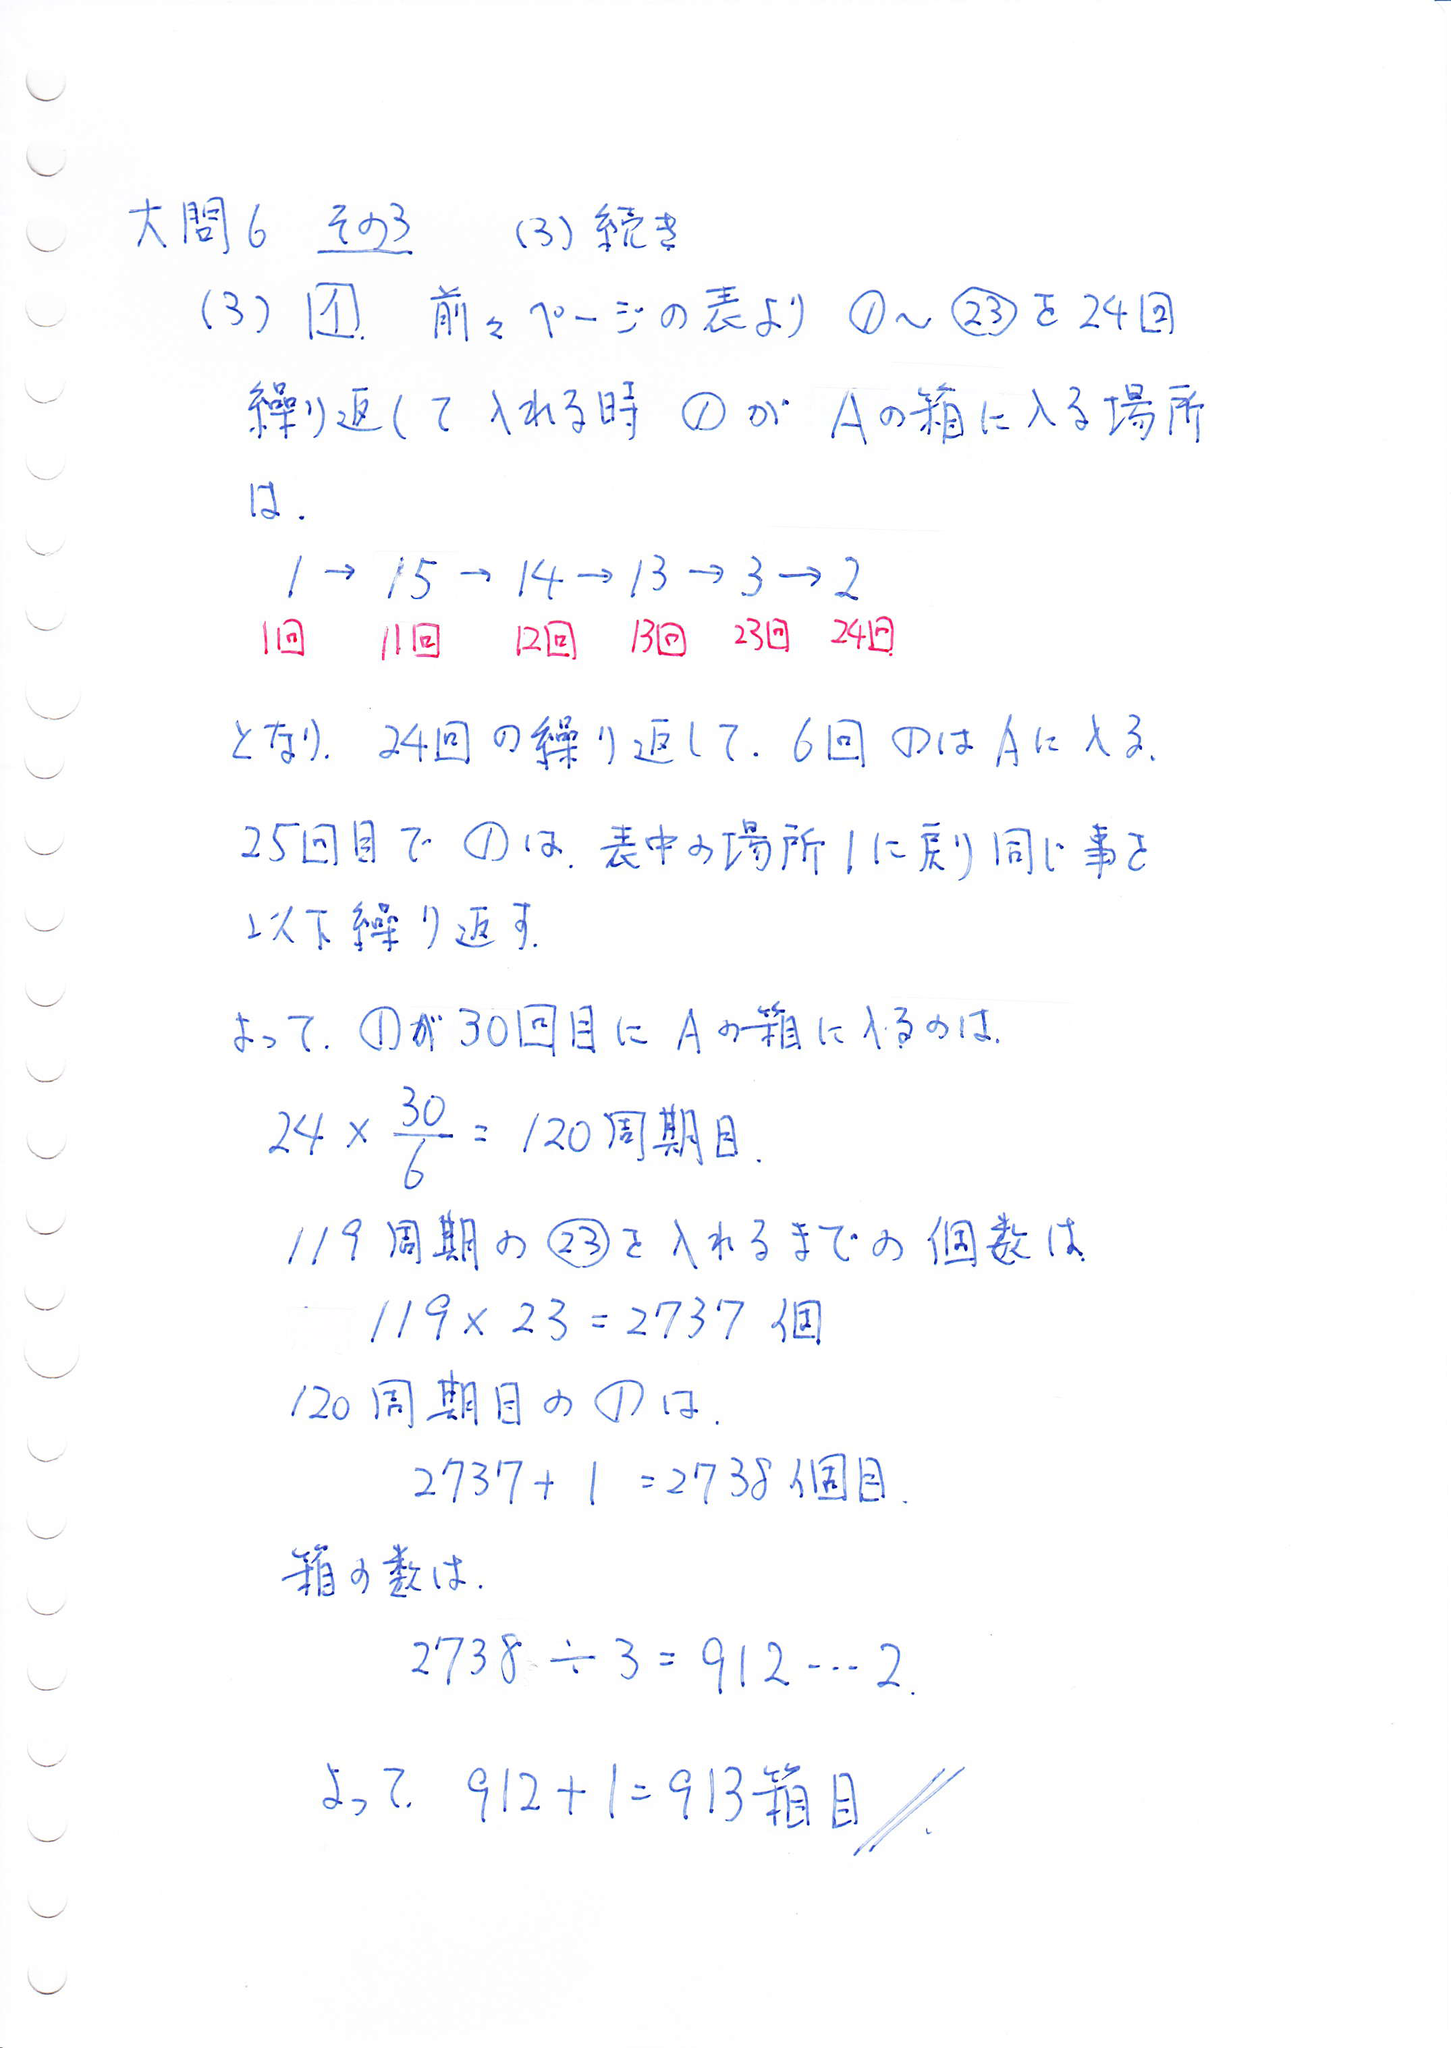 大問6 その3 (3)続き
(3) イ. 前々ページの表より ①〜㉓を24回
繰り返して入れる時 ①が Aの箱に入る場所
は.
1 → 15 → 14 → 13 → 3 → 2
1回 11回 12回 13回 23回 24回
となり. 24回の繰り返して. 6回 ①はAに入る.
25回目で ①は. 表中の場所1に戻り同じ事を
以下繰り返す.
よって. ①が30回目に Aの箱に入るのは.
24 × 30/6 = 120周期目.
119周期の㉓を入れるまでの個数は
119 × 23 = 2737 個
120周期目の①は.
2737 + 1 = 2738個目.
箱の数は.
2738 ÷ 3 = 912 … 2.
よって. 912 + 1 = 913箱目